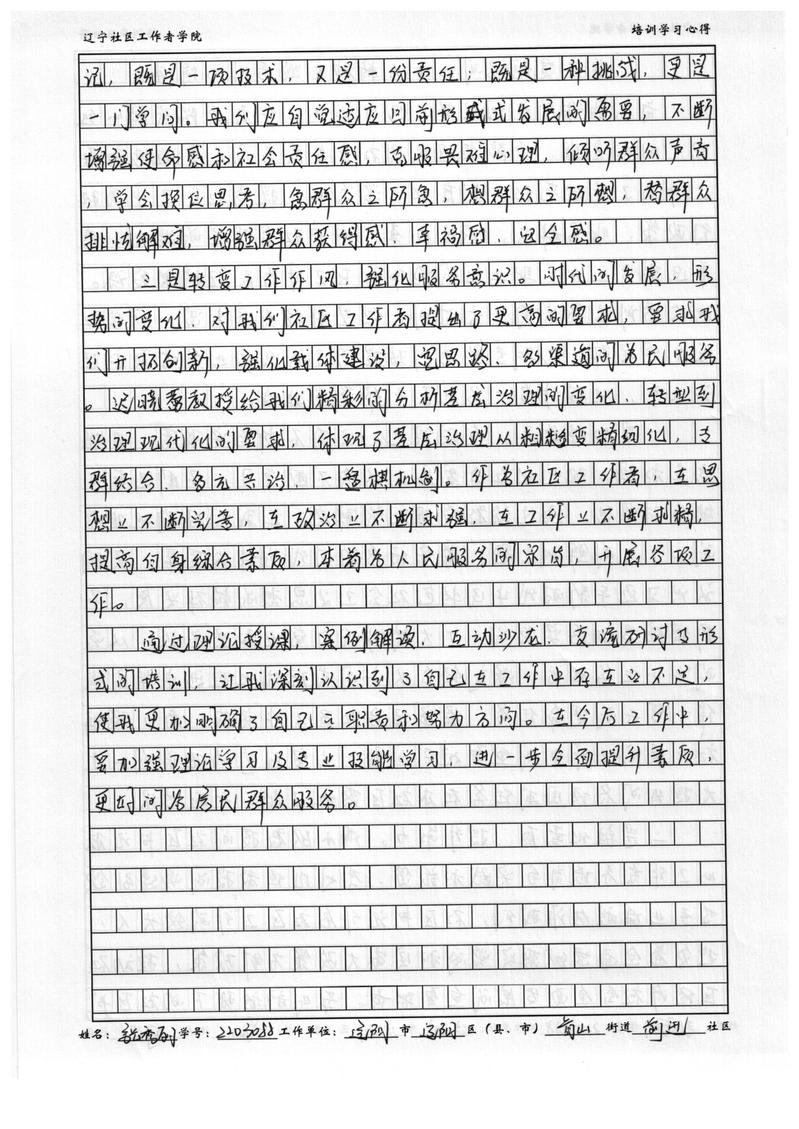 辽宁社区工作者学院 培训学习心得
记，既是一项技术，又是一份责任；既是一种挑战，更是
一门学问。我们应自觉适应目前形式发展的需要，不断
增强使命感和社会责任感，克服畏难心理，倾听群众声音
，学会换位思考，急群众之所急，想群众之所想，替群众
排忧解难，增强群众获得感、幸福感、安全感。
三是转变工作作风，强化服务意识。时代的发展，形
势的变化，对我们社区工作者提出了更高的要求，要求我
们开拓创新，强化载体建设，宽思路、多渠道的为民服务
。迟晓蕾教授给我们精彩的分析基层治理的变化、转型到
治理现代化的要求，体现了基层治理从粗糙变精细化，专
群结合，多元共治，一盘棋机制。作为社区工作者，在思
想上不断完善，在政治上不断求强，在工作上不断求精，
提高自身综合素质，本着为人民服务的宗旨，开展各项工
作。
通过理论授课，案例解读，互动沙龙，交流研讨等形
式的培训，让我深刻认识到了自己在工作中存在的不足，
使我更加明确了自己的职责和努力方向。在今后工作中，
要加强理论学习及专业技能学习，进一步全面提升素质，
更好的为居民群众服务。
姓名： 学号：2203088 工作单位： 市 区（县、市） 青山 街道 社区